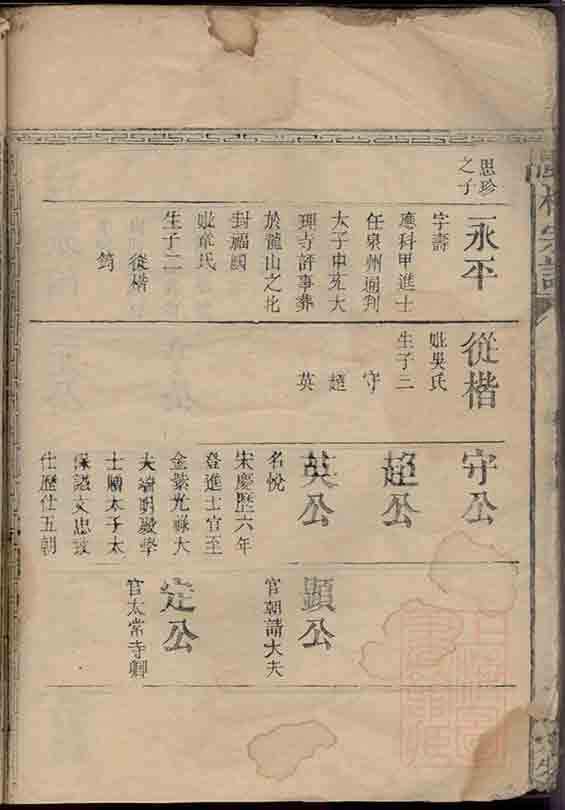 思珍
之子
永平
字壽
應科甲進士
任泉州通判
太子中充大
理寺評事葬
於龍山之北
封福國
妣章氏
生子二
從楷
筠
從楷
妣吳氏
生子三
守
超
英
守公
超公
英公
名悅
宋慶歷六年
登進士官至
金紫光祿大
夫 明殿學
士贈太子太
保諡文忠致
仕歷仕五朝
顕公
官朝請大夫
定公
官太常寺卿
宗譜